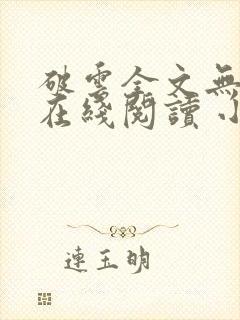 破雲全文無
在綫閱讀 小
連玉明